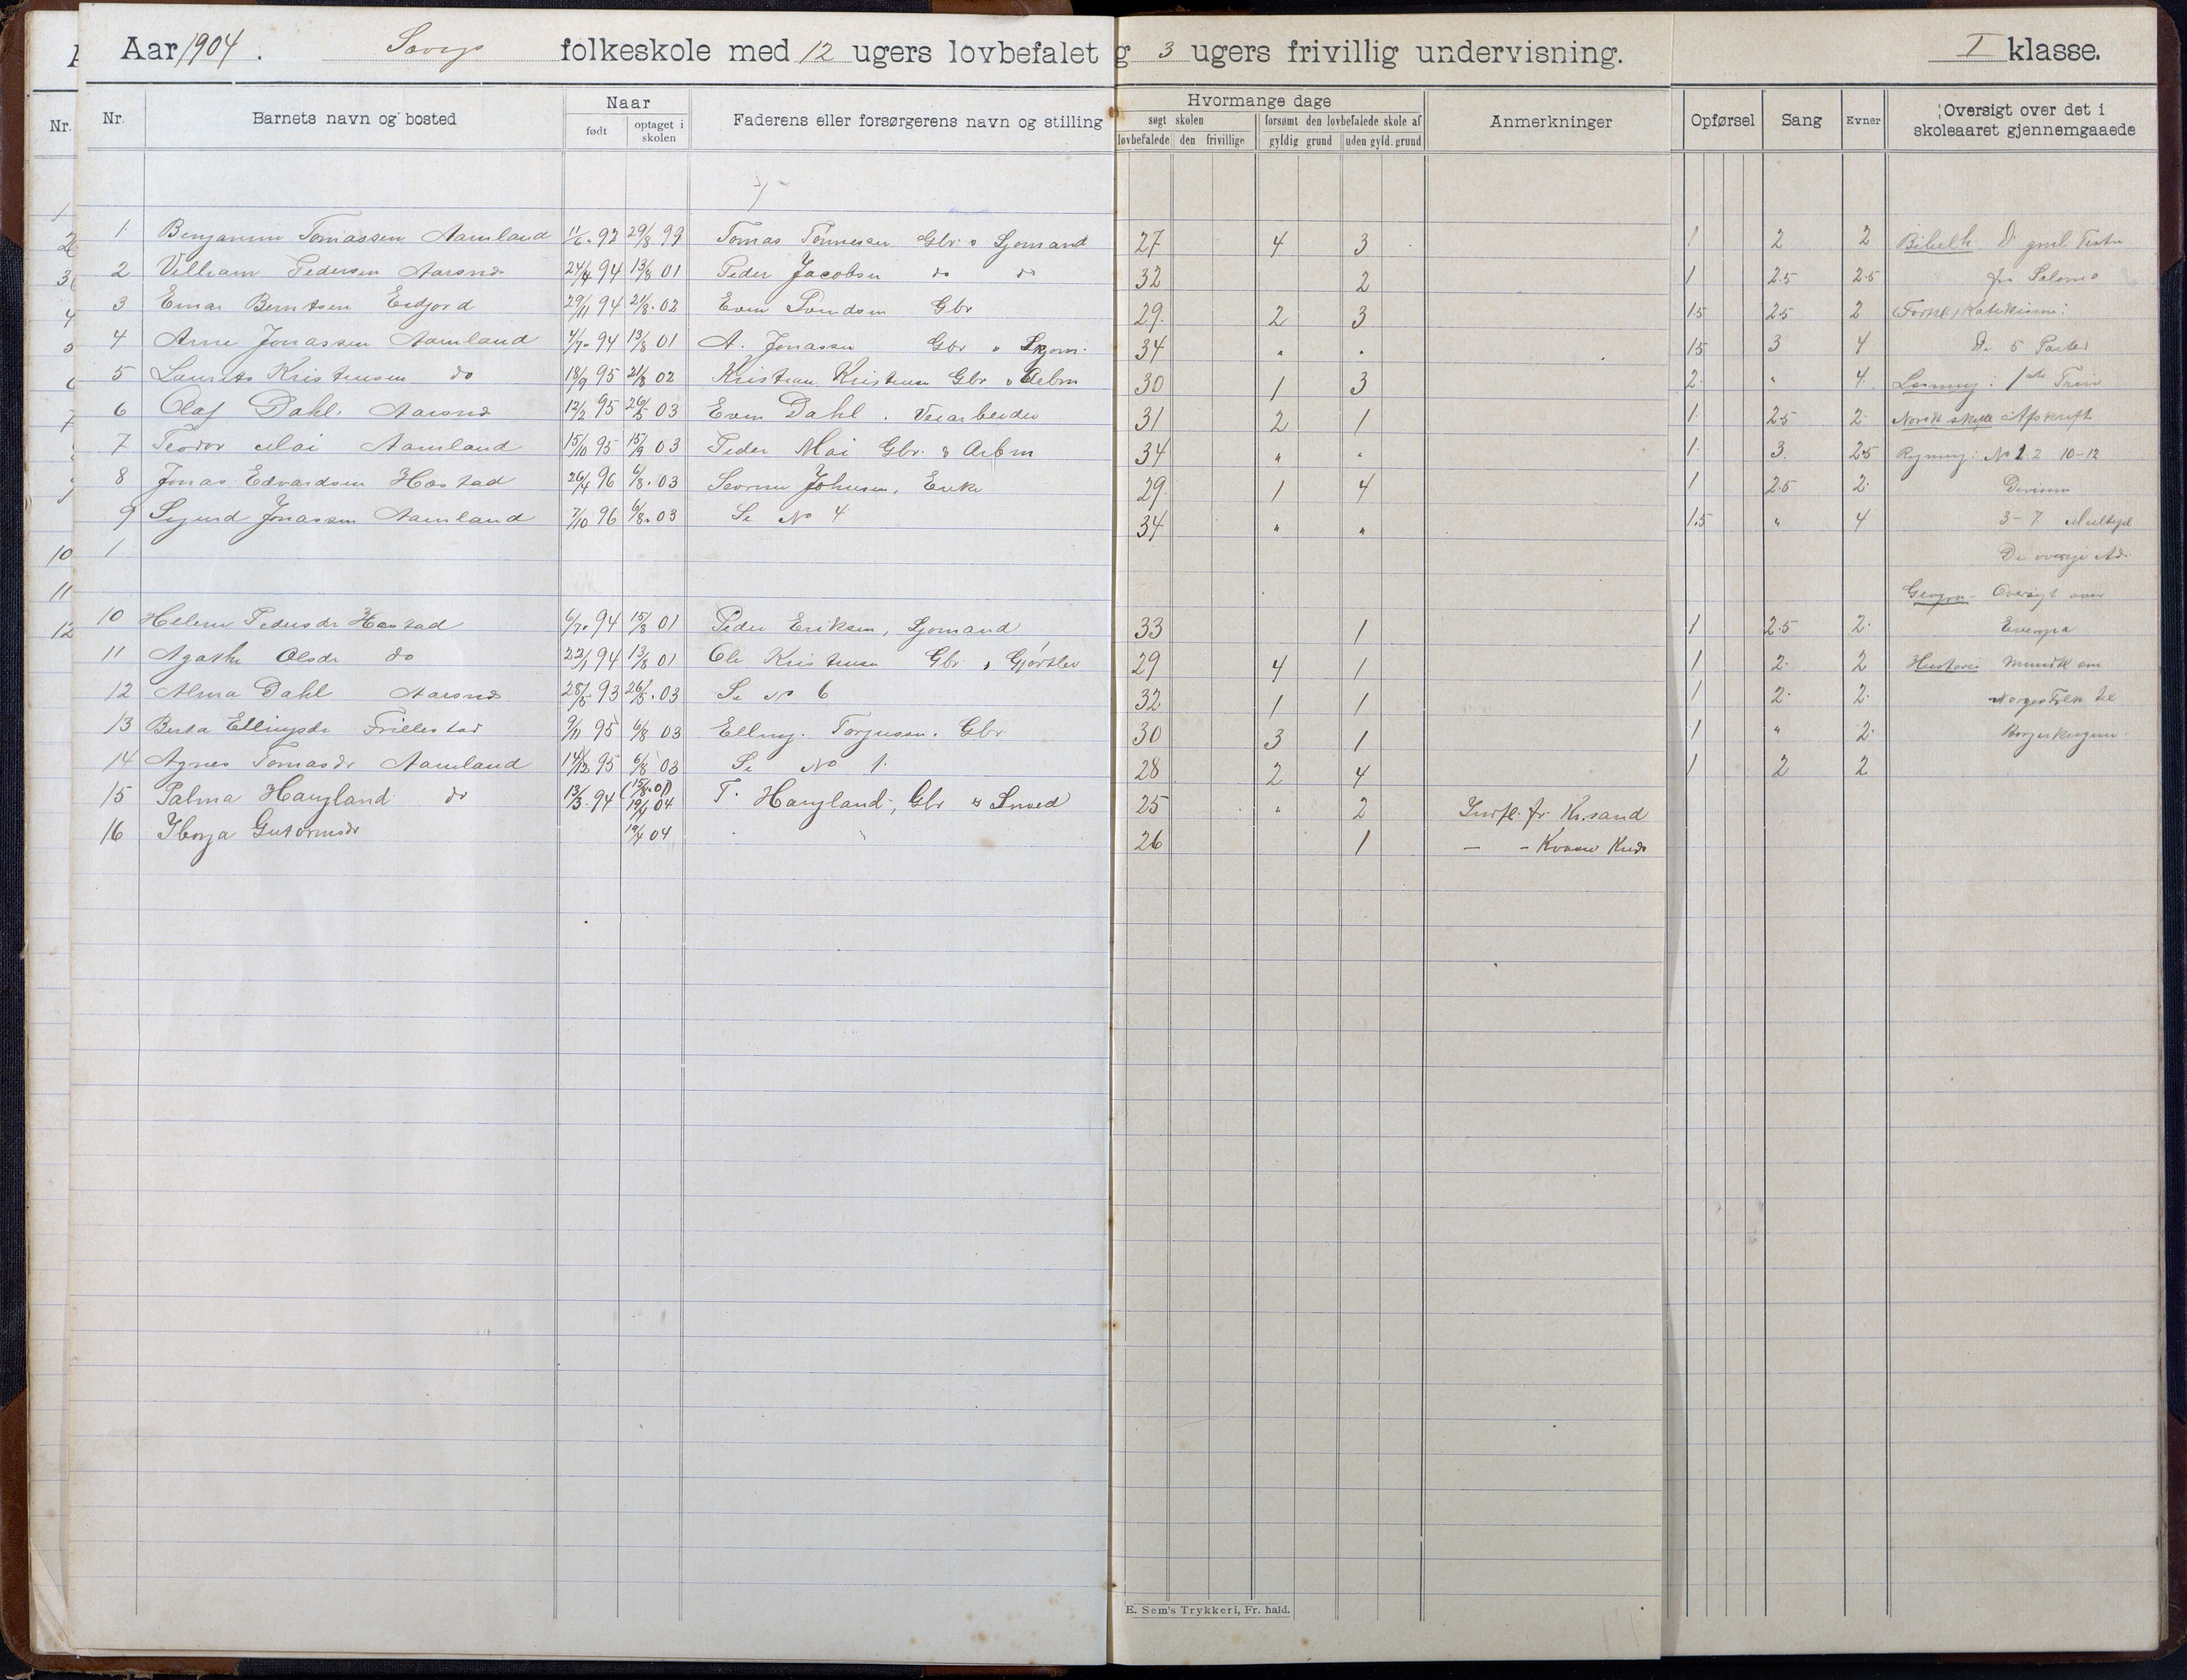 Aar 1904. folkeskole med 12 ugers lovbefalet g 3 ugers frivillig undervisning. I klasse.
Nr. Nr. Barnets navn og bosted Naar født optaget i skolen Faderens eller forsørgerens navn og stilling Hvormange dage søgt skolen lovbefalede den frivillige forsømt den lovbefalede skole af gyldig grund uden gyld. grund Anmerkninger Opførsel Sang Evner Oversigt over det i skoleaaret gjennemgaaede
1 Benjamin Tomassen Aamland 11/6. 92 29/8 99 Tomas Tønnesen Gbr. o Sjømand 27 4 3 1 2 2 Bibelh. D. gml. Testm
2 Vilham Pedersen Aarsnes 24/4 94 13/8 01 Peder Jacobsen do do 32 2 1 2.5 2.5 fra Salomo
3 Einar Berntsen Eidjord 29/11 94 21/8. 02 Even Svendsen Gbr 29. 2 3 1.5 2.5 2 Forkl.
4 Arne Jonassen Aamland 4/7. 94 13/8 01 A. Jonassen Gbr o 34 " " 1.5 3 4 De 5 Parter
5 Laurits Kristensen do 18/9 95 21/8 02 Kristian Kristensen Gbr o Arbm 30 1 3 2. " 4. Læsning: 1ste Trin
6 Olaf Dahl. Aarsnes 12/2 95 26/5 03 Even Dahl. Veiarbeider 31 2 1 1. 2.5 2. Norsk skriftl: Afskrift
7 Teodor Mai Aamland 15/10 95 15/9 03 Peder Mai Gbr. & Arbm 34 " " 1. 3. 2.5 Regning: No 1 2 10-12
8 Jonas Edvardsen Hæstad 26/4 96 6/8. 03 Johnsen, Enke 29. 1 4 1 2.5 2. Division
9 Sigurd Jonassen Aamland 7/10 96 6/8. 03 Se No 4 34 " " 1.5 " 4 3-7 Multipl
1 De øvrige Ad.
Geogra Oversigt over
10 Helene Pedersdr Hæstad 6/7. 94 15/8 01 Peder Eriksen, Sjømand 33 1 1 2.5 2. Europa
11 Agathe Olsdr do 22/1 94 13/8 01 Ole Kristensen Gbr. 29 4 1 1 2. 2 Historie Mundtl. om
12 Alma Dahl Aarsnes 28/5 93 26/5. 03 Se No 6 32 1 1 1 2. 2. Norges Folk til
13 Berta Ellingsdr Frillestad 9/11 95 6/8 03 Elling Torjussen. Gbr. 30 3 1 1 " 2. Borgerkrigene.
14 Agnes Tomasdr Aamland 14/12 95 6/8 03 Se No 1. 28 2 4 1 2 2
15 Palma Haugland do 13/3. 94 (15/8. 01) 19/4 04 T. Haugland, Gbr & Smed 25 " 2 Indfl. fr. Kr.sand
16 Guttormsdr 19/4 04 26 1 — –
1
2
3
4
5
6
7
10
11
12
E. Sem's Trykkeri, Fr. hald.